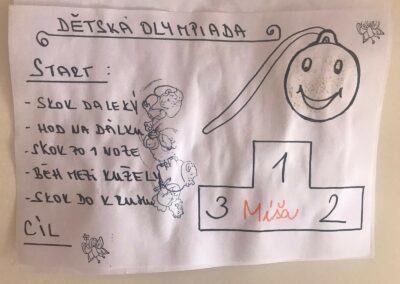 DĚTSKÁ OLYMPIADA
START :
- SKOK DALEKÝ
- HOD NA DÁLKU
- SKOK PO 1 NOŽE
- BĚH MEZI KUŽELY
- SKOK DO KRUHU
CÍL
1
3 Míša 2